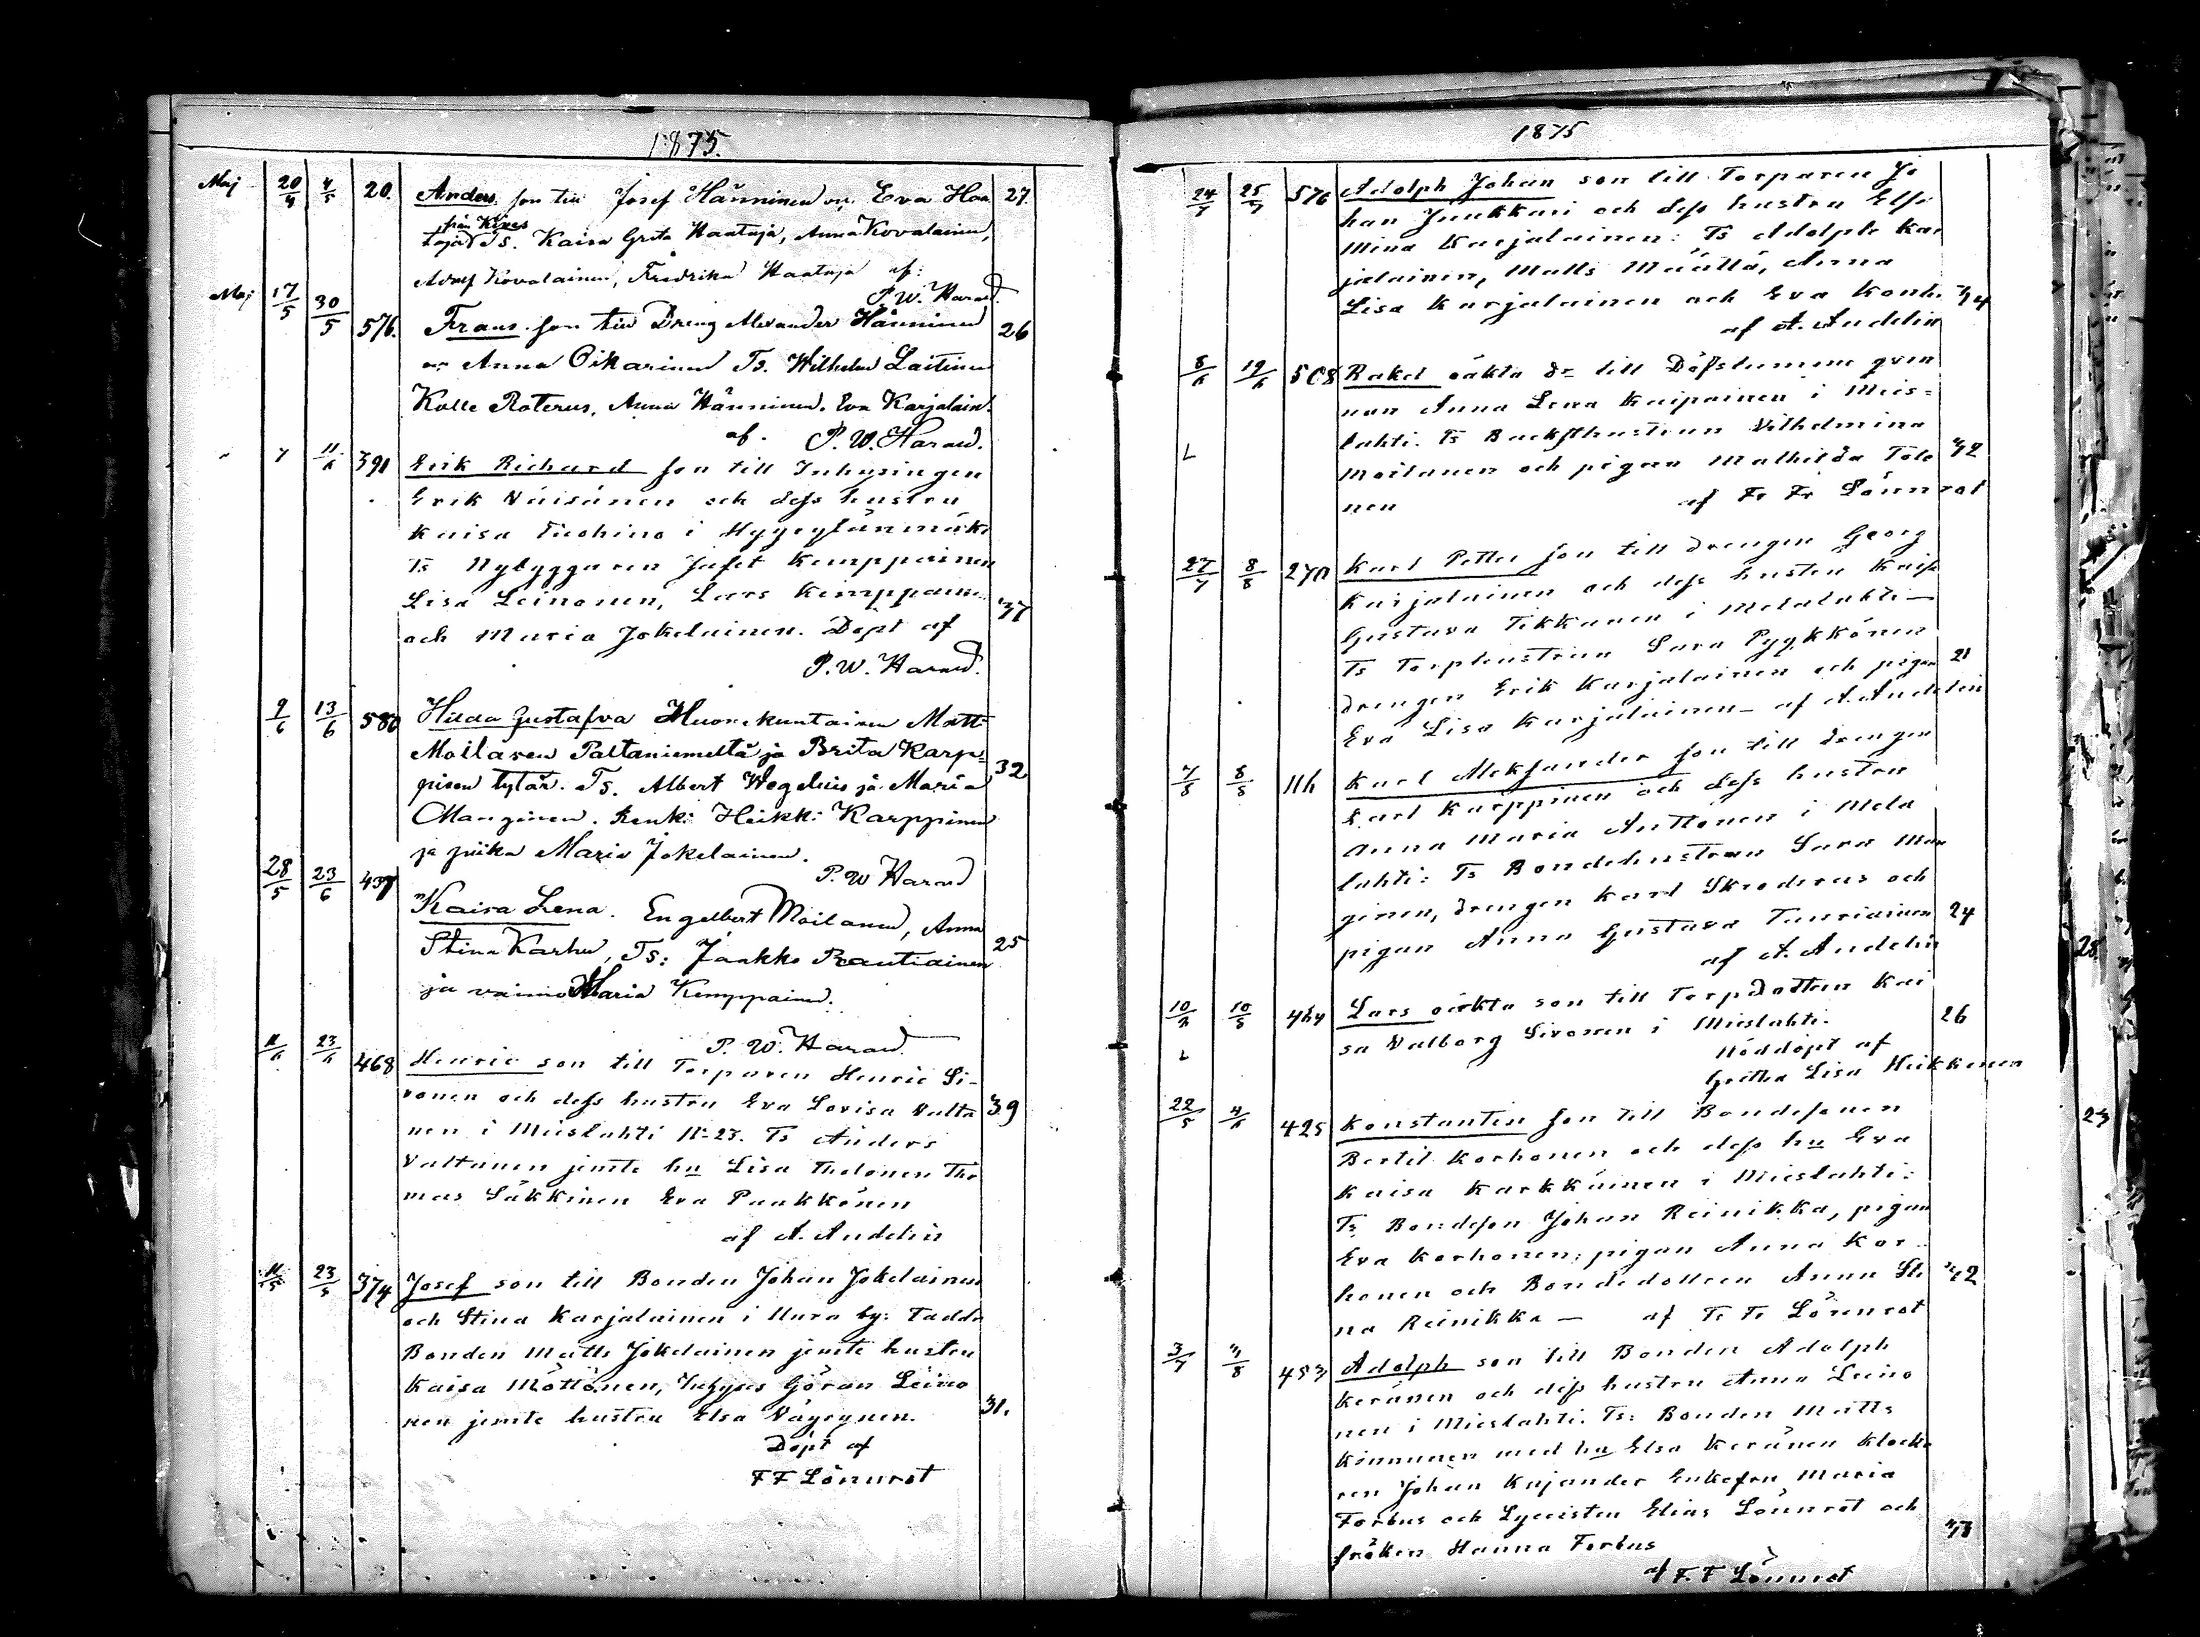 1875.
Maj 20/4 4/5 20. Anders son till Josef Hänninen o. Eva Haa 27.
från Kives
taja Ts. Kaisa Greta Haataja, Anna Kovalainen,
Adolf Kovalainen, Fredrika Haataja af:
P. W. Harald.
Maj 17/5 30/5 576. Frans son till Dreng Alexander Hänninen 26
Anna Oikarinen Ts. Wilhelm Laitinen
Kalle Roterus, Anna Hänninen. Eva Karjalain.
af. P. W. Harald.
7 11/6 391 Erik Richard son till Inhysingen
Erik Väisänen och dess hustru
Kaisa Tuohino i
Ts Nybyggaren Jafet Kemppainen
Lisa Leinonen, Lars Kemppainen 37
och Maria Jokelainen. Döpt af
P. W. Harald.
9/6 13/6 580 Hilda Gustafva Huonekuntainen Matti
Moilasen Paltaniemeltä ja Brita Karp=
pisen tytär. Ts. Albert Wegelius ja Maria 32
Manginen. Renki Heikki Karppinen
ja piika Maria Jokelainen.
P. W Harald
28/5 23/6 437 Kaisa Lena. Engelbert Moilanen, Anna
Stina Karhu, Ts: Jaakko Rautiainen 25
ja vaimo Maria Kemppainen.
P. W. Harald.
11/6 23/6 468 Henric son till Torparen Henric Si-
vonen och dess hustru Eva Lovisa Valta 39
nen i Mieslahti N:23. Ts Anders
Valtanen jemte hu Lisa Tholonen Tho
mas Säkkinen Eva Paakkönen
af A. Andelin
11/5 23/5 374 Josef son till Bonden Johan Jokelainen
och Stina Karjalainen i Uura by: Fadda
Bonden Matts Jokelainen jemte hustru
Kaisa Möttönen, Inhyses Göran Leino
nen jemte hustru Elsa Väyrynen. 31.
Döpt af
F F Lönnrot
1875
24/7 25/7 576 Adolph Johan son till Torparen Jo
han Juukkari och dess hustru Elsa
Mina Karjalainen: Ts Adolph Kar
jalainen, Matts Määttä, Anna
Lisa Karjalainen och Eva Konh.
af A. Andelin
8/6 19/6 508 Rakel oäkta dr till Döfstumme qvin
nan Anna Lena Kaipainen i Mies=
lahti. Ts Backsthustrun Vilhelmina
Moilanen och pigan Mathilda Tolo 42
nen af Fr Fr Lönnrot
27/7 8/8 270 Karl Petter son till drengen Georg
Karjalainen och dess hustru Kaisa
Gustava Tikkanen i Melalahti —
Ts Torphustrun Sara Pyykkönen
drengen Erik Karjalainen och pigan 21
Eva Lisa Karjalainen — af A. Andelin
7/8 8/8 116 Karl Aleksander son till drengen
Karl Karppinen och dess hustru
Anna Maria Anttonen i Mela
lahti: Ts Bondehustrun Sara Man
ginen, drengen Karl Skroderus och
pigan Anna Gustava Tauriainen 24
af A. Andelin
464 Lars oäkta son till Torpdottren Kai
sa Valborg Sivonen i Mieslahti. 26
Nöddöpt af
Gretha Lisa Heikkinen
22/5 425 Konstantin son till Bondesonen
Bertil Korhonen och dess hu Eva
Kaisa Karkkäinen i Mieslahti:
Ts Bondeson Johan Reinikka, pigan
Eva Korhonen; pigan Anna Kor-
honen och Bondedottren Anna Sti
na Reinikka — af Fr Fr Lönnrot
3/7 453 Adolph son till Bonden Adolph
Keränen och dess hustru Anna Leino
nen i Mieslahti. Ts: Bonden Matts
Kinnunen med hu Elsa Keränen Klocka
ren Johan Kajander Enkefru Maria
Forbus och Lyceisten Elias Lönnrot och
fröken Hanna Forbus
af F. F Lönnrot
28.
23